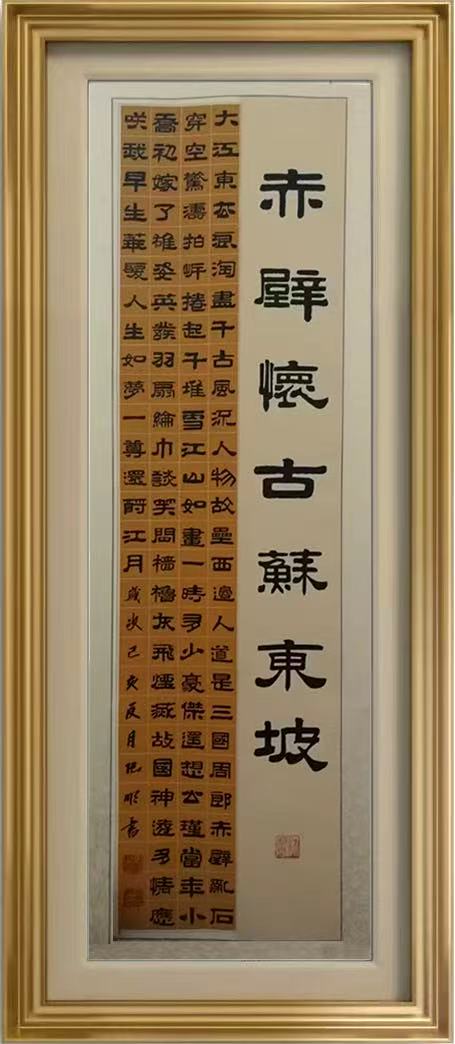 赤壁懷古蘇東坡
大江東去浪淘盡千古風流人物故壘西邊人道是三國周郎赤壁亂石
穿空驚濤拍岸捲起千堆雪江山如畫一時多少豪傑遙想公瑾當年小
喬初嫁了雄姿英發羽扇綸巾談笑間檣櫓灰飛煙滅故國神遊多情應
咲我早生華髮人生如夢一尊還酹江月歲次己亥夏月書